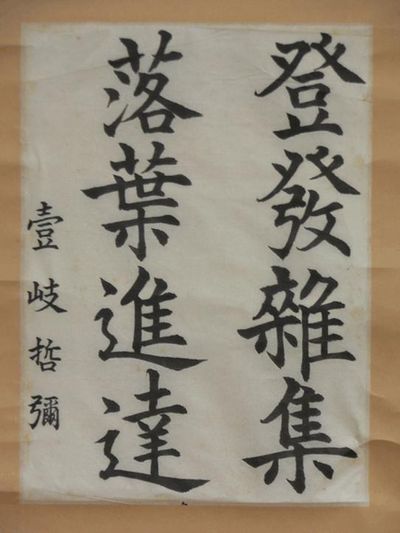 登發雜集
落葉進達
壹岐哲彌